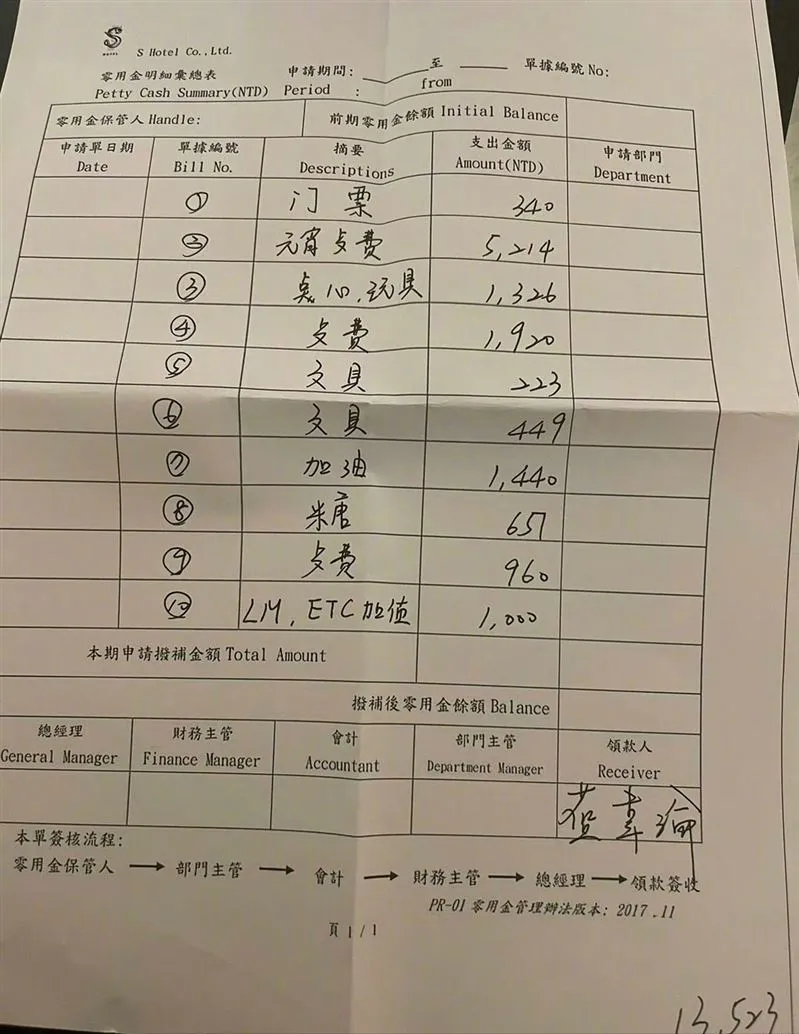 S
HOTEL
S Hotel Co.,Ltd.
零用金明細彙總表 申請期間: 至 單據編號 No:
Petty Cash Summary(NTD) Period : from
零用金保管人 Handle: 前期零用金餘額 Initial Balance
申請單日期 單據編號 摘要 支出金額 申請部門
Date Bill No. Descriptions Amount(NTD) Department
① 门票 340
② 元宵歺费 5,214
③ 点心,玩具 1,326
④ 歺费 1,920
⑤ 文具 223
⑥ 文具 449
⑦ 加油 1,440
⑧ 651
⑨ 歺费 960
⑩ LM, ETC 加值 1,000
本期申請撥補金額 Total Amount
撥補後零用金餘額 Balance
總經理 財務主管 會計 部門主管 領款人
General Manager Finance Manager Accountant Department Manager Receiver
本單簽核流程:
零用金保管人 → 部門主管 → 會計 → 財務主管 → 總經理 → 領款簽收
PR-01 零用金管理辦法版本: 2017.11
頁 1/1
13,523